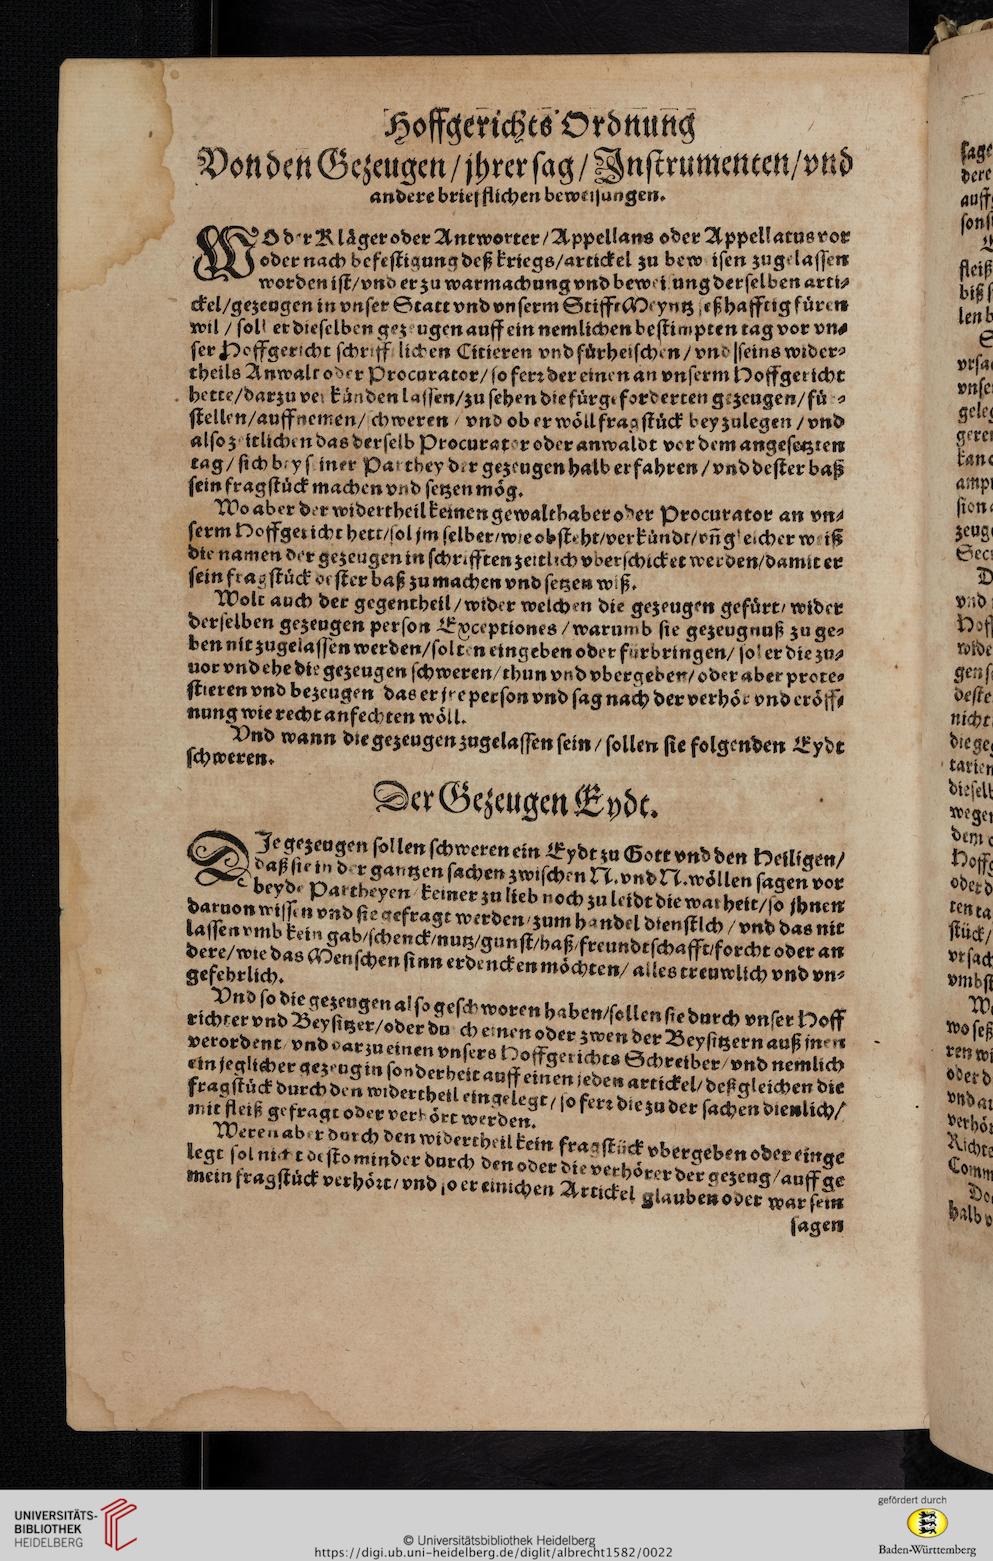 Hoffgerichts Ordnung
Von den Gezeugen / jhrer sag / Instrumenten / vnd
andere briefflichen beweisungen.
WO der Kläger oder Antworter / Appellans oder Appellatus vor
oder nach befestigung deß kriegs / artickel zu beweisen zugelassen
worden ist / vnd er zu warmachung vnd beweisung derselben arti-
ckel / gezeugen in vnser Statt vnd vnserm Stifft Meyntz seßhafftig füren
wil / soll er dieselben gezeugen auff ein nemlichen bestimpten tag vor vn-
ser Hoffgericht schrifftlichen Citieren vnd fürheischen / vnd seins wider-
theils Anwalt oder Procurator / so ferz der einen an vnserm Hoffgericht
hette / darzu verkünden lassen / zu sehen die fürgeforderten gezeugen / für-
stellen / auffnemen / schweren / vnd ob er wöll fragstück beyzulegen / vnd
also zeitlichen das derselb Procurator oder anwaldt vor dem angesetzten
tag / sich bey seiner Parthey der gezeugen halb erfahren / vnd dester baß
sein fragstück machen vnd setzen mög.
Wo aber der widertheil keinen gewalthaber oder Procurator an vn-
serm Hoffgericht hett / sol jm selber / wie obsteht / verkündt / vñ gleicher weiß
die namen der gezeugen in schrifften zeitlich vberschicket werden / damit er
sein fragstück dester baß zu machen vnd setzen wiß.
Wolt auch der gegentheil / wider welchen die gezeugen gefürt / wider
derselben gezeugen person Exceptiones / warumb sie gezeugnuß zu ge-
ben nit zugelassen werden / solten eingeben oder fürbringen / sol er die zu-
uor vnd ehe die gezeugen schweren / thun vnd vbergeben / oder aber prote-
stieren vnd bezeugen das er jre person vnd sag nach der verhör vnd eröff-
nung wie recht anfechten wöll.
Vnd wann die gezeugen zugelassen sein / sollen sie folgenden Eydt
schweren.
Der Gezeugen Eydt.
DIe gezeugen sollen schweren ein Eydt zu Gott vnd den Heiligen /
daß sie in der gantzen sachen zwischen N. vnd N. wöllen sagen vor
beyde Partheyen / keiner zu lieb noch zu leidt die warheit / so jhnen
daruon wissen vnd sie gefragt werden / zum handel dienstlch / vnd das nit
lassen vmb kein gab / schenck / nutz / gunst / haß / freundtschafft / forcht oder an
dere / wie das Menschen sinn erdencken möchten / alles treuwlich vnd vn-
gefehrlich.
Vnd so die gezeugen also geschworen haben / sollen sie durch vnser Hoff
richter vnd Beysitzer / oder durch einen oder zwen der Beysitzern auß jnen
verordent / vnd darzu einen vnsers Hoffgerichts Schreiber / vnd nemlich
ein jeglicher gezeug in sonderheit auff einen jeden artickel / deßgleichen die
fragstück durch den widertheil eingelegt / so ferz die zu der sachen dienlich /
mit fleiß gefragt oder verhört werden.
Weren aber durch den widertheil kein fragstück vbergeben oder einge
legt sol nicht desto minder durch den oder die verhörer der gezeug / auff ge
mein fragstück verhört / vnd so er einichen Artickel glauben oder war sein
sagen
UNIVERSITÄTS-
BIBLIOTHEK
HEIDELBERG
© Universitätsbibliothek Heidelberg
https://digi.ub.uni-heidelberg.de/diglit/albrecht1582/0022
gefördert durch
Baden-Württemberg